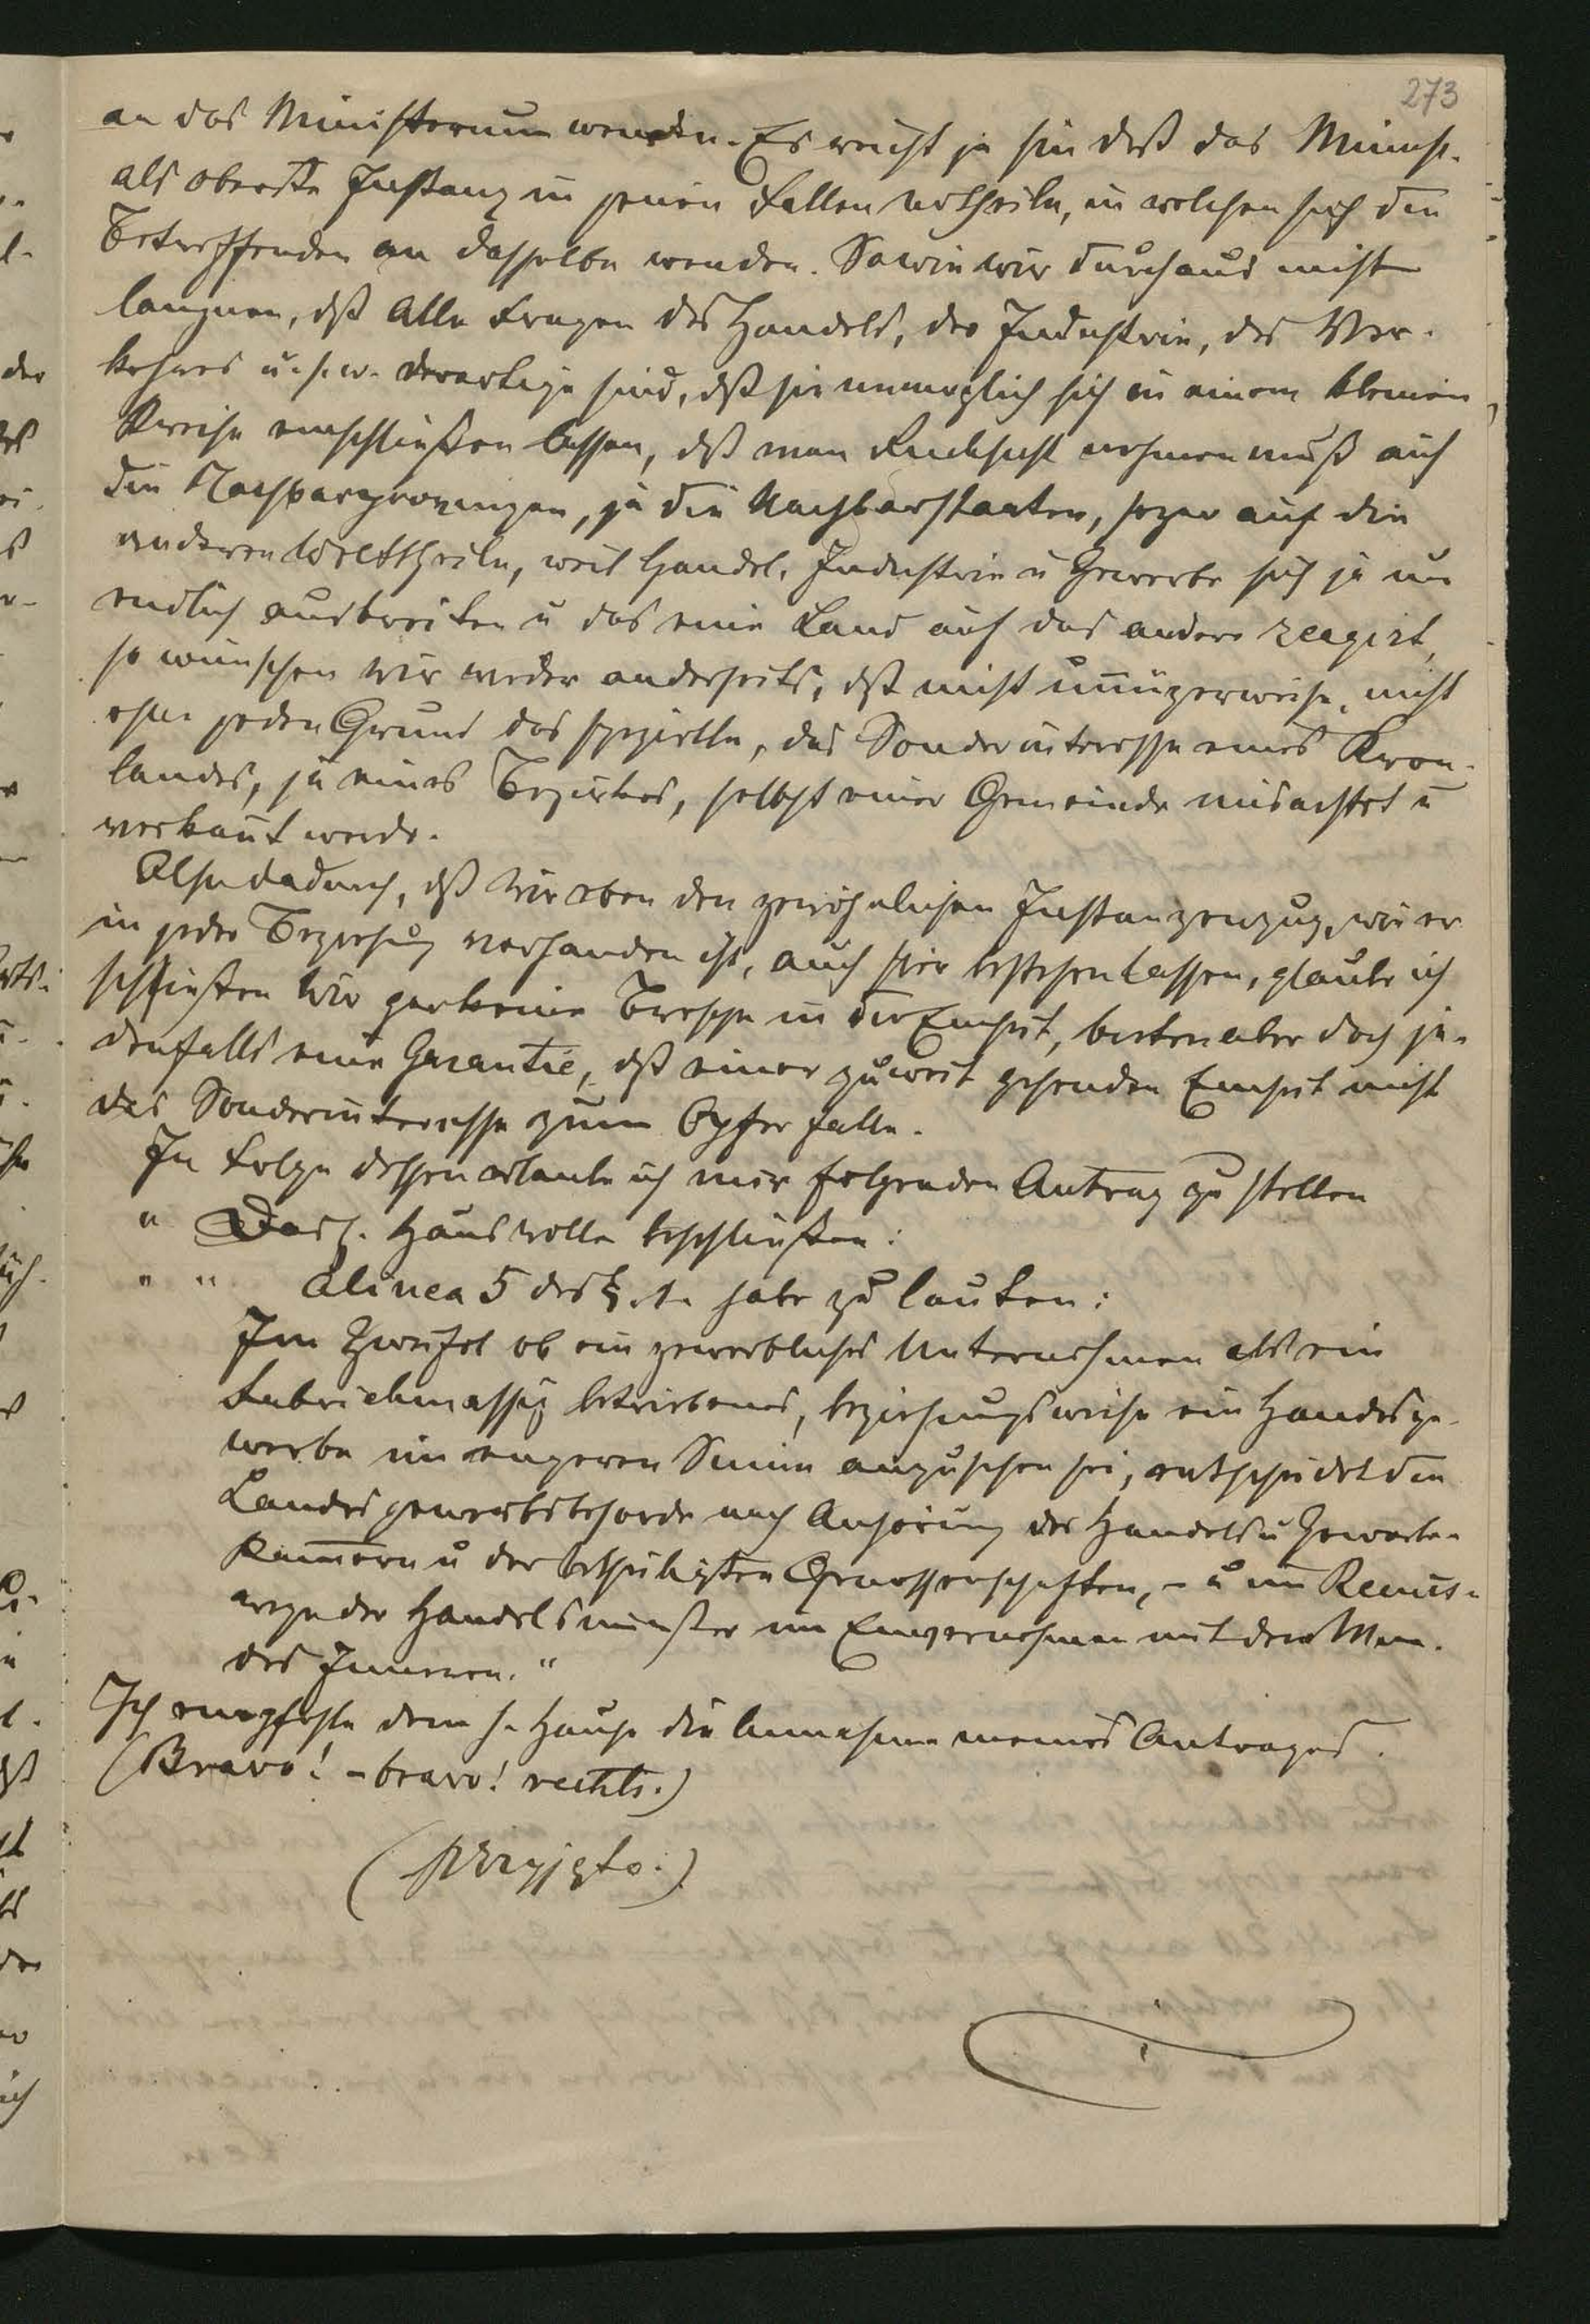 273
an das Ministerium wenden. Es reicht ja hin daß das Minist.
als oberste Instanz in jenen Fällen urtheile, in welchen sich die
Betreffenden an dasselbe wenden. Sowie wir durchaus nicht
laugnen, dß alle Fragen des Handels, der Industrie, des Ver-
kehres u. s. w. derartige sind, dß sie unmoglich sich in einem kleinen
Kreise einschließen lassen, dß man Rucksicht nehmen muß auf
die Nachbarprovinzen, ja die Nachbarstaaten, sogar auf die
anderen Welttheile, weil Handel, Industrie u Gewerbe sich ja un
endlich ausbreiten u das eine Land auf das andere reagirt,
so wunschen wir wieder anderseits, dß nicht unnüzerweise, nicht
ohne jeden Grund das spezielle, das Sonderinteresse eines Kron-
landes, ja eines Bezirkes, selbst einer Gemeinde misachtet u
verkannt werde.
Also dadurch, dß wir eben den gewöhnlichen Instanzenzug, wie er
in jeder Beziehung vorhanden ist, auch hier bestehen lassen, glaube ich
schießen wir gar keine Bresche in die Einheit, bieten aber doch je-
denfalls eine Garantie, dß einer zuweit gehenden Einheit nicht
das Sonderinteresse zum Opfer falle.
In Folge dessen erlaube ich mir folgenden Antrag zu stellen
" Das h. Haus wolle beschließen:
" " Alinea 5 des § 1. habe zu lauten:
Im Zweifel ob ein gewerbliches Unternehmen als ein
fabrickmassig betriebenes, beziehungsweise ein Handelsge-
werbe im engeren Sinne anzusehen sei, entscheidet die
Landesgewerbsbehorde nach Anhörung der Handels u Gewerbe-
Kammern u der betheiligten Genossenschaften, - u im Recurs-
wege der Handelsminister im Einvernehmen mit dem Min.
des Inneren."
Ich empfehle dem h. Hause die Annahme meines Antrages.
(Bravo! - bravo! rechts.)
(przyjęto.)